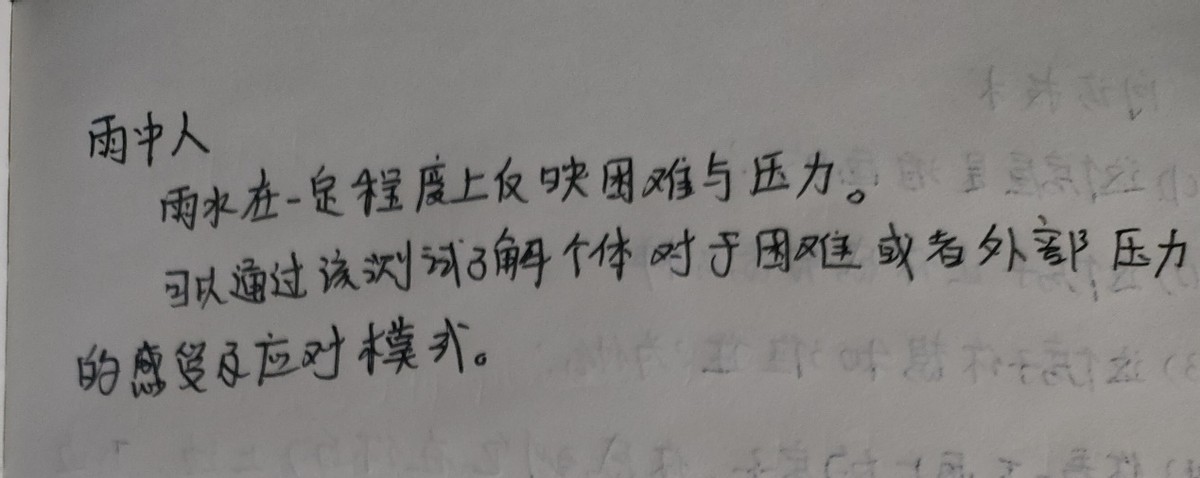 雨中人
雨水在一定程度上反映困难与压力。
可以通过该测试了解个体对于困难或者外部压力
的感受及应对模式。